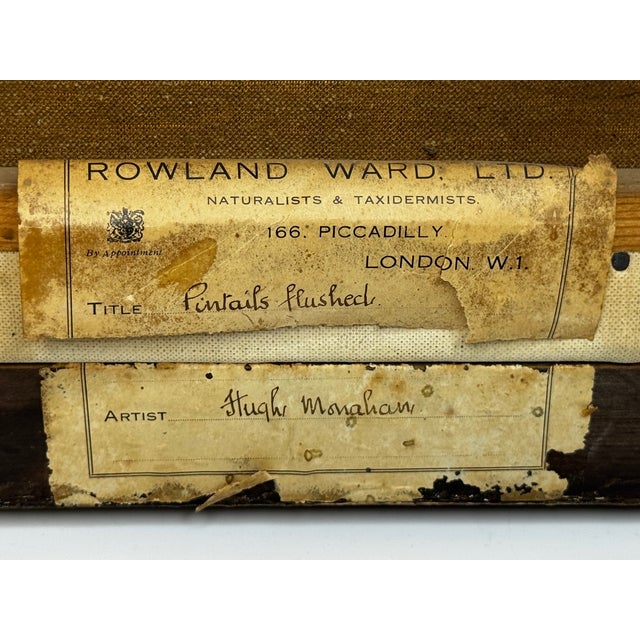 ROWLAND WARD. LTD.
NATURALISTS & TAXIDERMISTS.
166. PICCADILLY.
By Appointment
LONDON. W.1.
TITLE Pintails flushed.
ARTIST Hugh Monahan